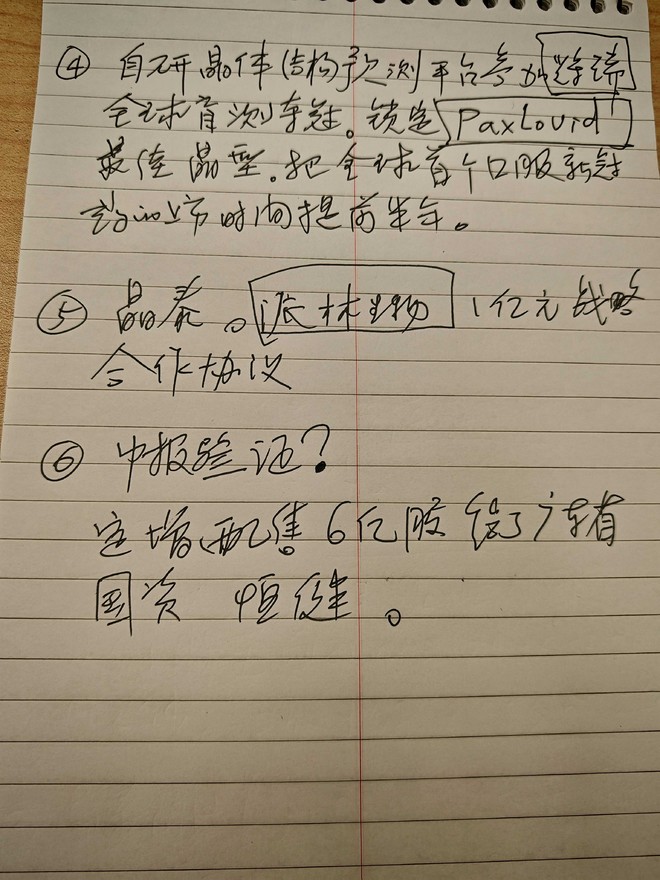 ④ 自研晶体结构预测平台参加辉瑞
全球盲测夺冠。锁定 Paxlovid
最佳晶型。把全球首个口服新冠
药的上市时间提前半年。
⑤ 晶泰。派林生物 1亿元战略
合作协议
⑥ 中报验证?
定增、配售。6亿股 给了广东有
国资 恒健。